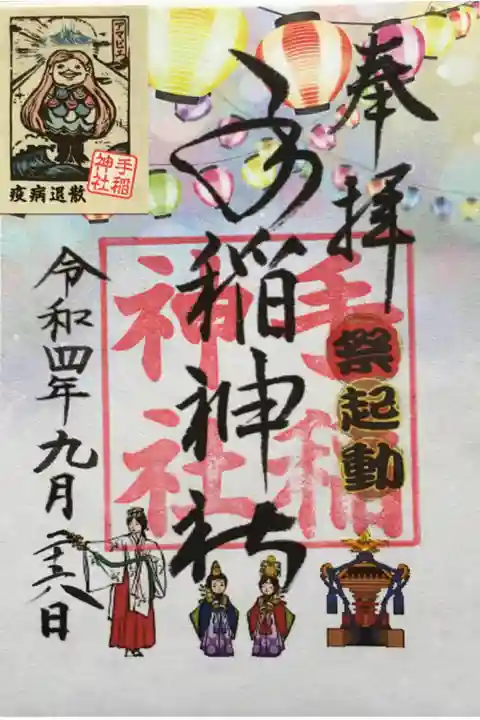 奉拝
祭起動
手稲神社
手稲
神社
令和四年九月二十六日
アマビエ
手稲
神社
疫病退散